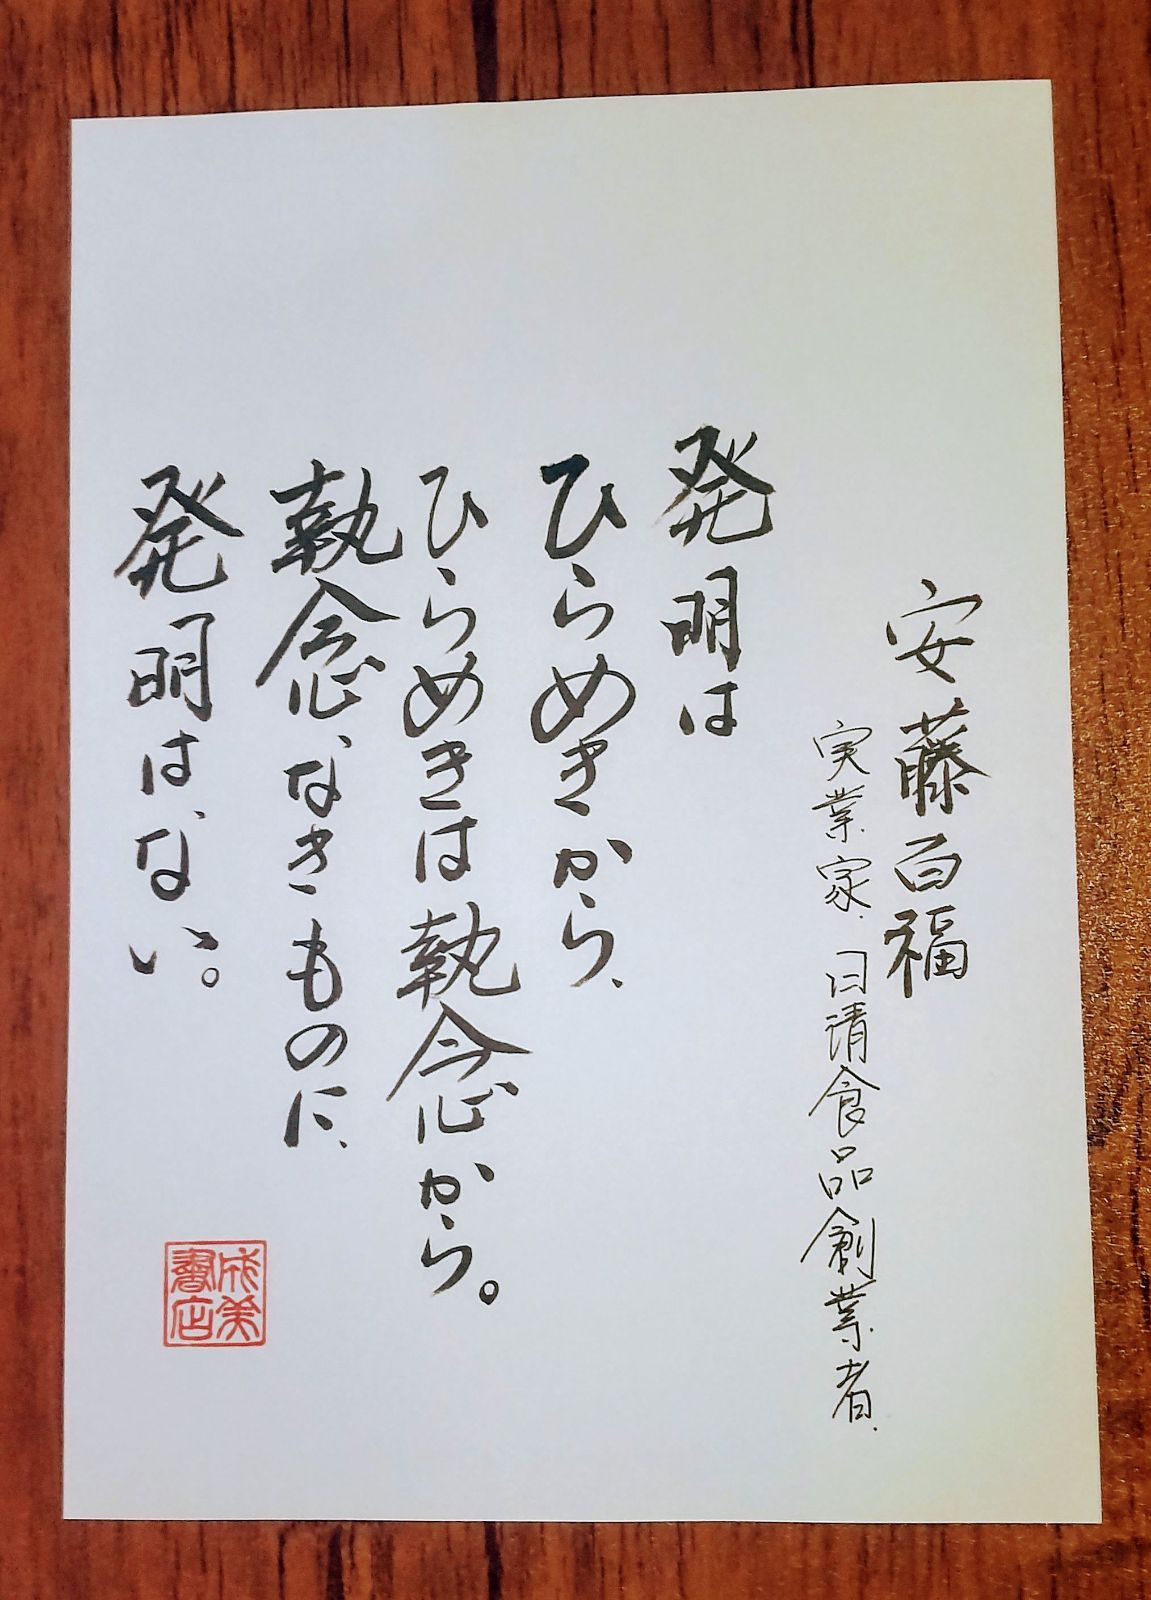 安藤百福
実業家、日清食品創業者、
発明は
ひらめきから、
ひらめきは執念から。
執念、なきものに、
発明は、ない。
成美
書店